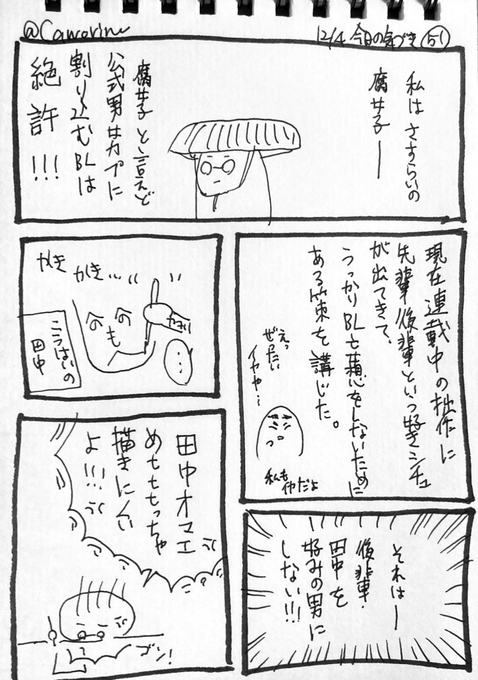 @Camerine
12/4 今日の気づき(51)
私はさすらいの
腐女子ー
腐女子と言えど
公式男女カプに
割り込むBLは
絶許!!!
現在連載中の拙作に
先輩後輩といつ好きシチュ
が出てきて、
うっかりBLを
しないために
ある策を講じた。
えっ
ぜったい
イヤや…
私もイヤだよ
かき
かき…
こうはいの
田中
それはー
後輩・
田中を
好みの男に
しない!!!
田中オマエ
めちちちっちゃ
描きにくい
よ!!!
ゴン!